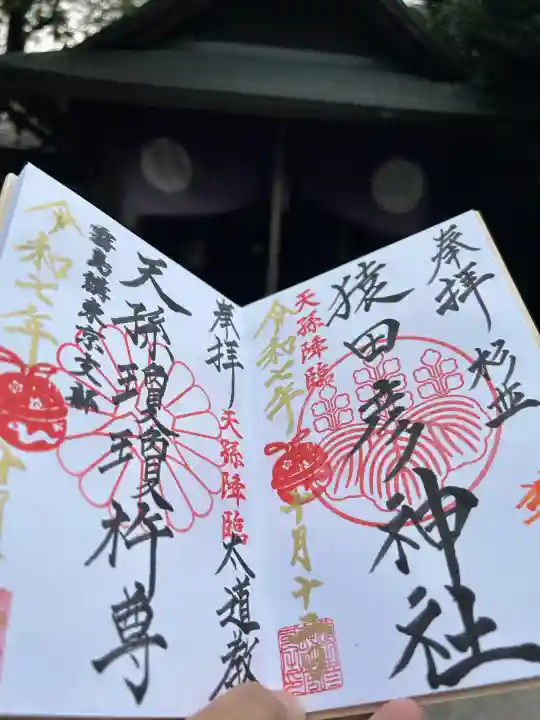 奉拝
杉並
猿田彦神社
天孫降臨
令和七年
十月十
奉拝
天孫降臨
太道教
天孫瓊瓊杵尊
霧島講東京支部
令和七年
十月